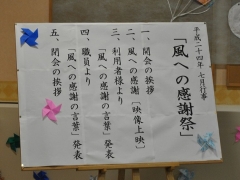 平成二十四年 七月行事
「風への感謝祭」
一、開会の挨拶
二、風への感謝［映像上映］
三、利用者様より
「風への感謝の言葉」発表
四、職員より
「風への感謝の言葉」発表
五、閉会の挨拶